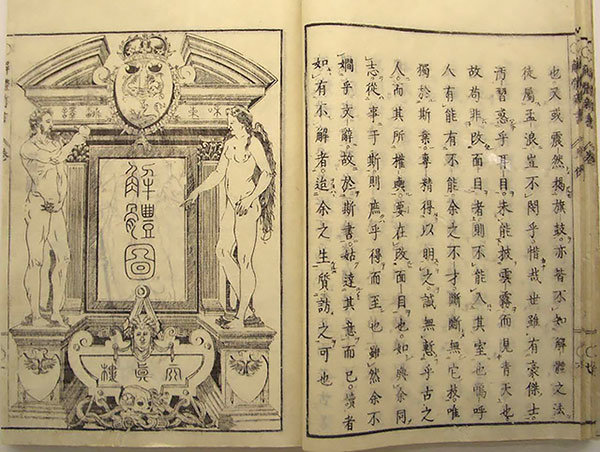 也又或震然揭旗鼓亦皆不如解體之法
徒屬孟浪豈不閔乎惜哉世雖有豪傑士
汚習惑乎耳目未能披雲霧而見青天也
故苟非改面目者則不能入其室也嗚呼
人有能有不能余之不才斷斷無它技唯
獨於斯業專精得以明之誠無慙乎古之
人而其所權輿要在改面目也如與余同
志從事于斯則庶乎得而至也雖然余不
嫺乎文辭故於斯書姑達其意而已讀者
如有不解者迨余之生質訪之可也
解體圖
天眞樓